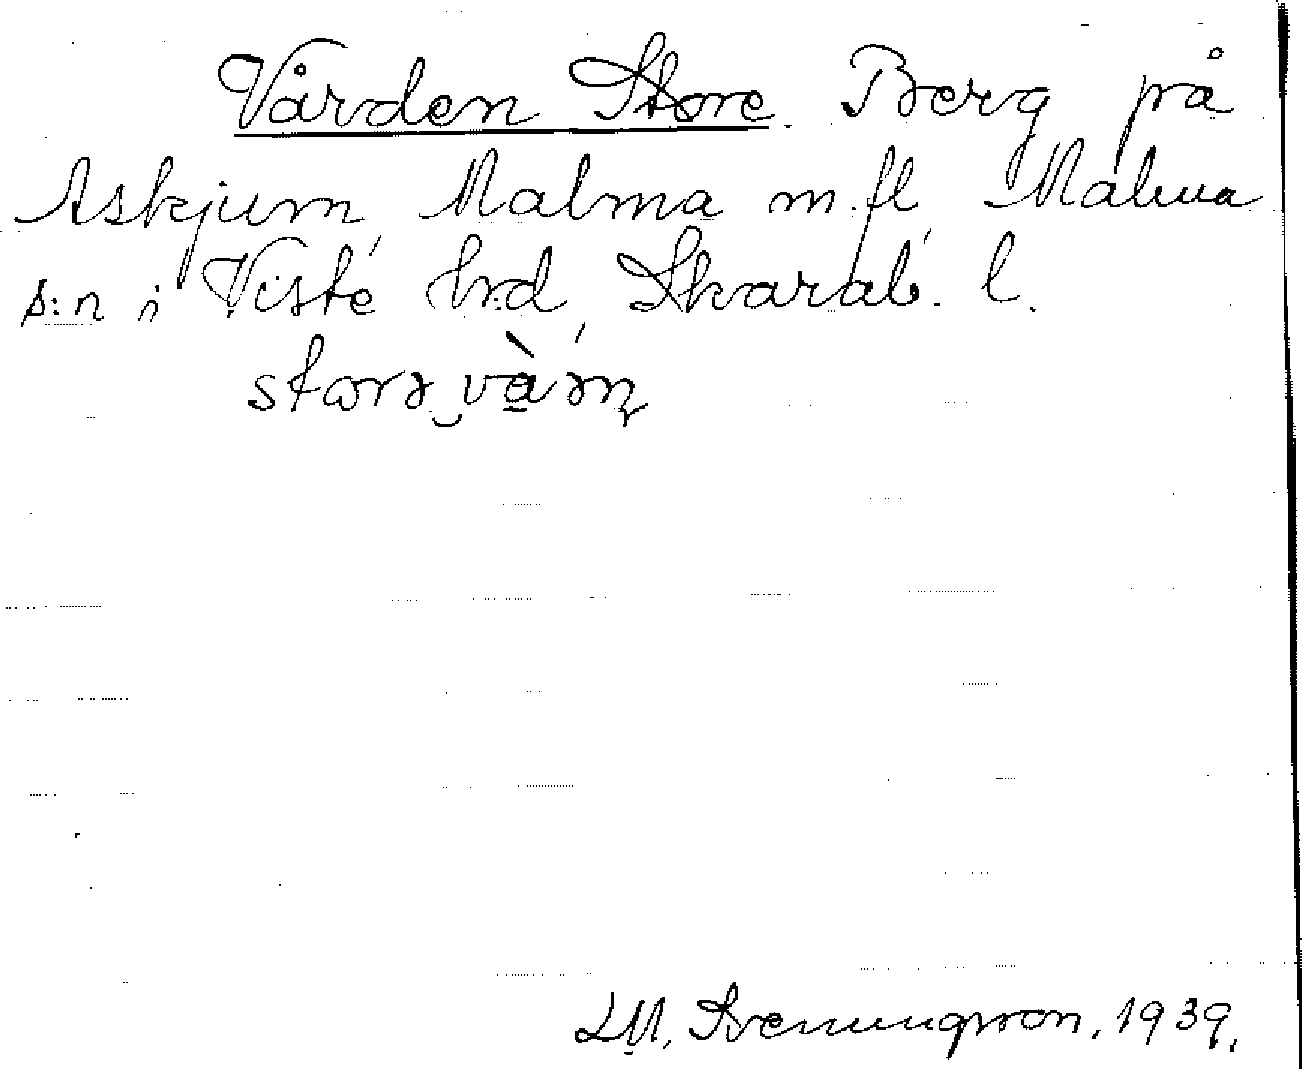 Vården Store. Berg på
Askjum, Malma m.fl. Malma
s:n i Viste hrd, Skarab. l.
L M. Svenungsson. 1939.